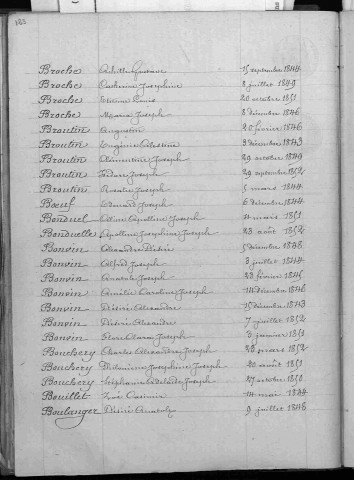 Broche Achille Gustave 15 septembre 1844
Broche Catherine Joséphine 8 juillet 1849
Broche Etienne Louis 20 octobre 1851
Broche Marie Joseph 8 décembre 1846
Broutin Augustin 20 février 1846
Broutin Eugène Célestin 3 décembre 1843
Broutin Clémentine Joseph 29 octobre 1844
Broutin Isidore Joseph 29 septembre 1852
Broutin Rosalie Joseph 5 mars 1844
Bœuf Edmond Joseph 6 décembre 1844
Bonduel Apolline Joseph 4 mars 1851
Bonduelle Apolline Joséphine Joseph 23 août 1852
Bonvin Alexandre Désiré 5 décembre 1848
Bonvin Alfred Joseph 3 juillet 1844
Bonvin Anatole Joseph 23 février 1845
Bonvin Amélie Caroline Joseph 14 décembre 1846
Bonvin Désiré Alexandre 15 décembre 1843
Bonvin Désiré Alexandre 7 juillet 1852
Bonvin Marie Joseph 3 janvier 1851
Bouchery Charles Alexandre Joseph 28 mars 1852
Bouchery Philomène Joséphine Joseph 20 août 1851
Bouchery Stéphanie Adélaïde Joseph 27 octobre 1850
Bouillet Zoé Casimir 14 mai 1844
Boulanger Désiré Anatole 9 juillet 1846